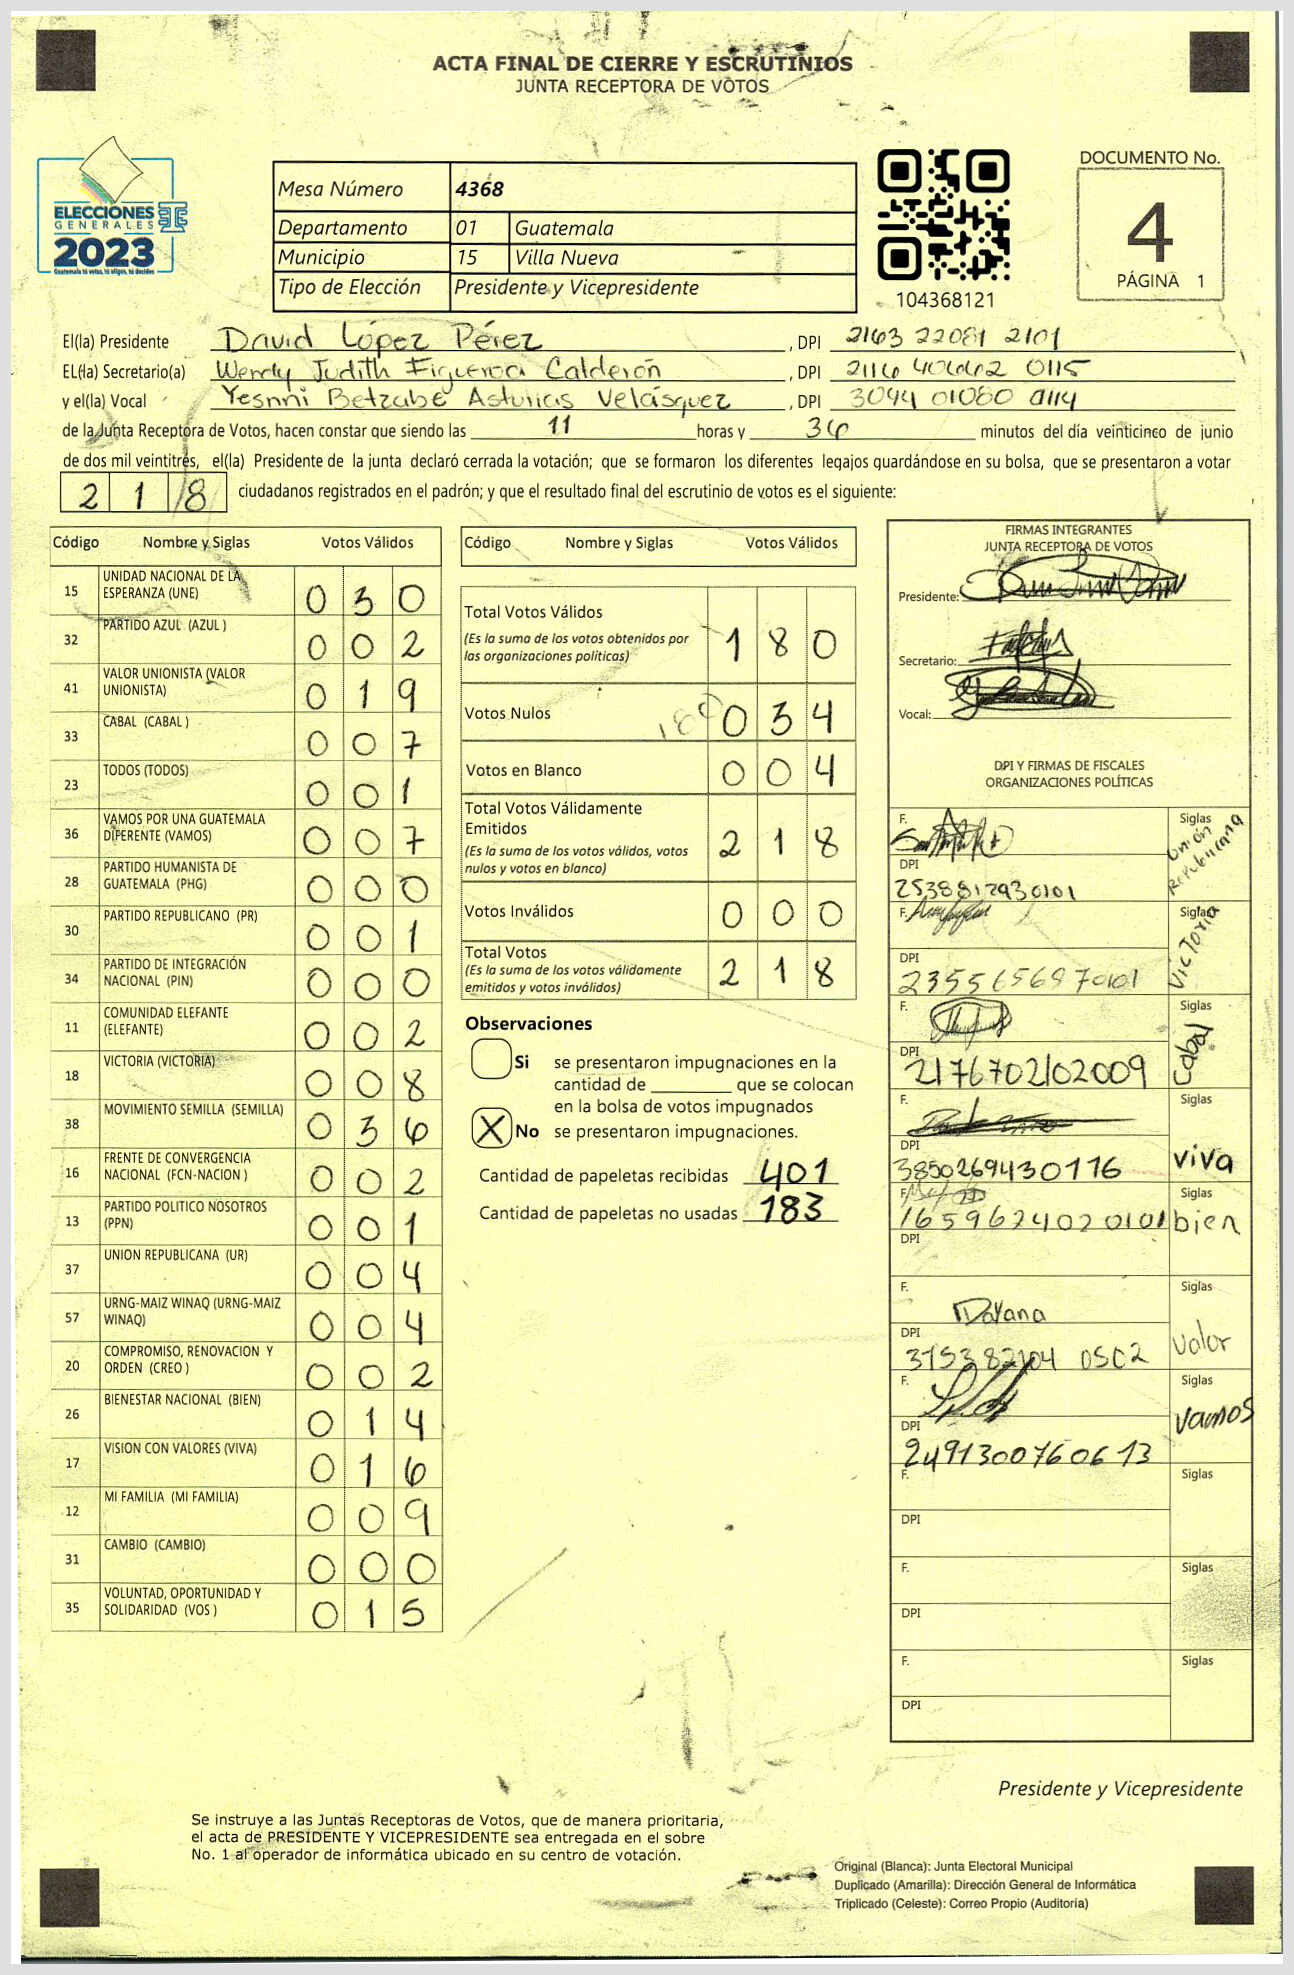 ACTA FINAL DE CIERRE Y ESCRUTINIOS
JUNTA RECEPTORA DE VOTOS
ELECCIONES
GENERALES
2023
Guatemala tú votas, tú eliges, tú decides
Mesa Número 4368
Departamento 01 Guatemala
Municipio 15 Villa Nueva
Tipo de Elección Presidente y Vicepresidente
104368121
DOCUMENTO No.
4
PÁGINA 1
El(la) Presidente David López Pérez, DPI 2163 22081 2101
EL(la) Secretario(a) Wendy Judith Figueroa Calderón, DPI 2116 40662 0115
y el(la) Vocal Yesnni Betzabe Asturias Velásquez, DPI 3044 01080 0114
de la Junta Receptora de Votos, hacen constar que siendo las 11 horas y 36 minutos del día veinticinco de junio
de dos mil veintitrés, el(la) Presidente de la junta declaró cerrada la votación; que se formaron los diferentes legajos guardándose en su bolsa, que se presentaron a votar
218 ciudadanos registrados en el padrón; y que el resultado final del escrutinio de votos es el siguiente:
Código Nombre y Siglas Votos Válidos
15 UNIDAD NACIONAL DE LA ESPERANZA (UNE) 030
32 PARTIDO AZUL (AZUL ) 002
41 VALOR UNIONISTA (VALOR UNIONISTA) 019
33 CABAL (CABAL ) 007
23 TODOS (TODOS) 001
36 VAMOS POR UNA GUATEMALA DIFERENTE (VAMOS) 007
28 PARTIDO HUMANISTA DE GUATEMALA (PHG) 000
30 PARTIDO REPUBLICANO (PR) 001
34 PARTIDO DE INTEGRACIÓN NACIONAL (PIN) 000
11 COMUNIDAD ELEFANTE (ELEFANTE) 002
18 VICTORIA (VICTORIA) 008
38 MOVIMIENTO SEMILLA (SEMILLA) 036
16 FRENTE DE CONVERGENCIA NACIONAL (FCN-NACION ) 002
13 PARTIDO POLITICO NOSOTROS (PPN) 001
37 UNION REPUBLICANA (UR) 004
57 URNG-MAIZ WINAQ (URNG-MAIZ WINAQ) 004
20 COMPROMISO, RENOVACION Y ORDEN (CREO ) 002
26 BIENESTAR NACIONAL (BIEN) 014
17 VISION CON VALORES (VIVA) 016
12 MI FAMILIA (MI FAMILIA) 009
31 CAMBIO (CAMBIO) 000
35 VOLUNTAD, OPORTUNIDAD Y SOLIDARIDAD (VOS ) 015
Código Nombre y Siglas Votos Válidos
Total Votos Válidos 180
(Es la suma de los votos obtenidos por
las organizaciones politicas)
Votos Nulos 180 034
Votos en Blanco 004
Total Votos Válidamente
Emitidos 218
(Es la suma de los votos válidos, votos
nulos y votos en blanco)
Votos Inválidos 000
Total Votos 218
(Es la suma de los votos válidamente
emitidos y votos inválidos)
Observaciones
Si se presentaron impugnaciones en la
cantidad de ________ que se colocan
en la bolsa de votos impugnados
X No se presentaron impugnaciones.
Cantidad de papeletas recibidas 401
Cantidad de papeletas no usadas 183
FIRMAS INTEGRANTES
JUNTA RECEPTORA DE VOTOS
Presidente:
Secretario:
Vocal:
DPI Y FIRMAS DE FISCALES
ORGANIZACIONES POLÍTICAS
F. Siglas Unión Republicana
DPI 2538812930101
F. Siglas Victoria
DPI 2355656970101
F. Siglas Cabal
DPI 2176702102009
F. Siglas viva
DPI 3850269430116
F. Siglas bien
1659624020101
DPI
F. Dayana Siglas Valor
DPI 3153 82104 0502
F. Siglas Vamos
DPI 2491300760613
F. Siglas
DPI
F. Siglas
DPI
F. Siglas
DPI
Presidente y Vicepresidente
Se instruye a las Juntas Receptoras de Votos, que de manera prioritaria,
el acta de PRESIDENTE Y VICEPRESIDENTE sea entregada en el sobre
No. 1 al operador de informática ubicado en su centro de votación.
Original (Blanca): Junta Electoral Municipal
Duplicado (Amarilla): Dirección General de Informática
Triplicado (Celeste): Correo Propio (Auditoría)